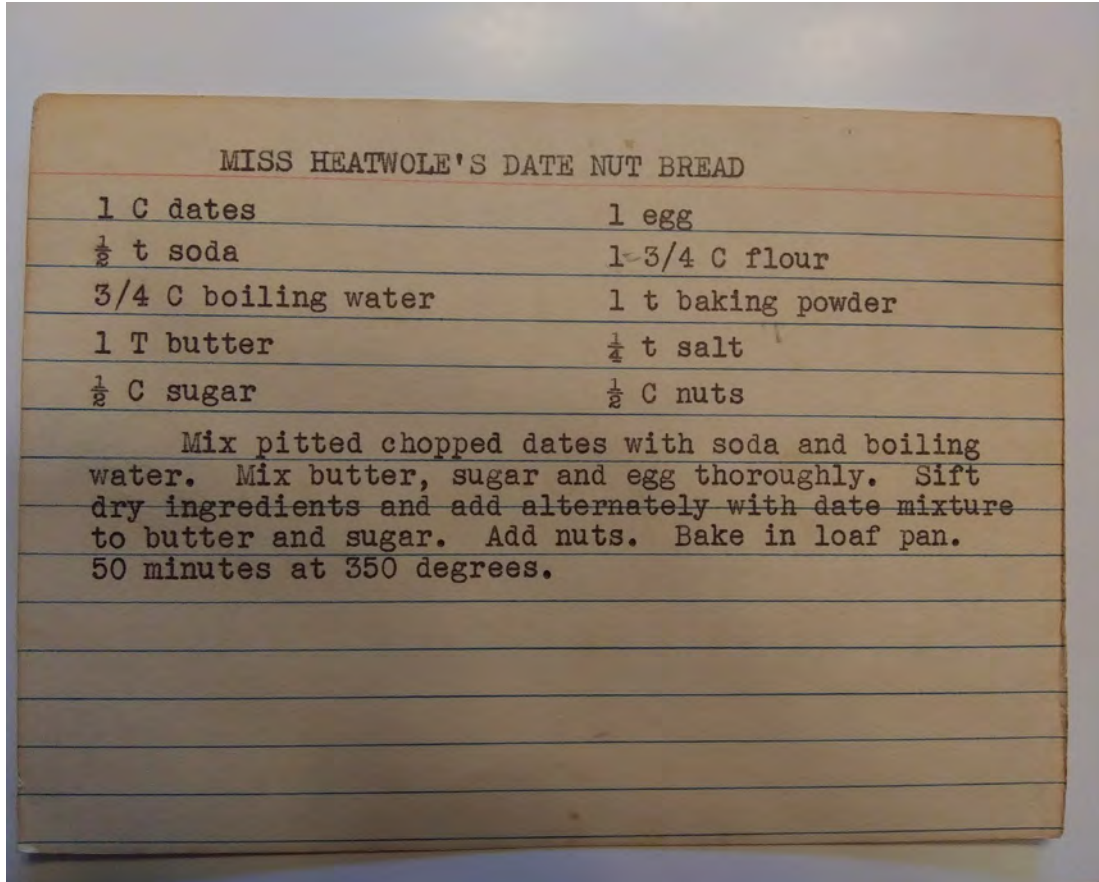 MISS HEATWOLE'S DATE NUT BREAD
1 C dates 1 egg
½ t soda 1-3/4 C flour
3/4 C boiling water 1 t baking powder
1 T butter ¼ t salt
½ C sugar ½ C nuts
Mix pitted chopped dates with soda and boiling
water. Mix butter, sugar and egg thoroughly. Sift
dry ingredients and add alternately with date mixture
to butter and sugar. Add nuts. Bake in loaf pan.
50 minutes at 350 degrees.